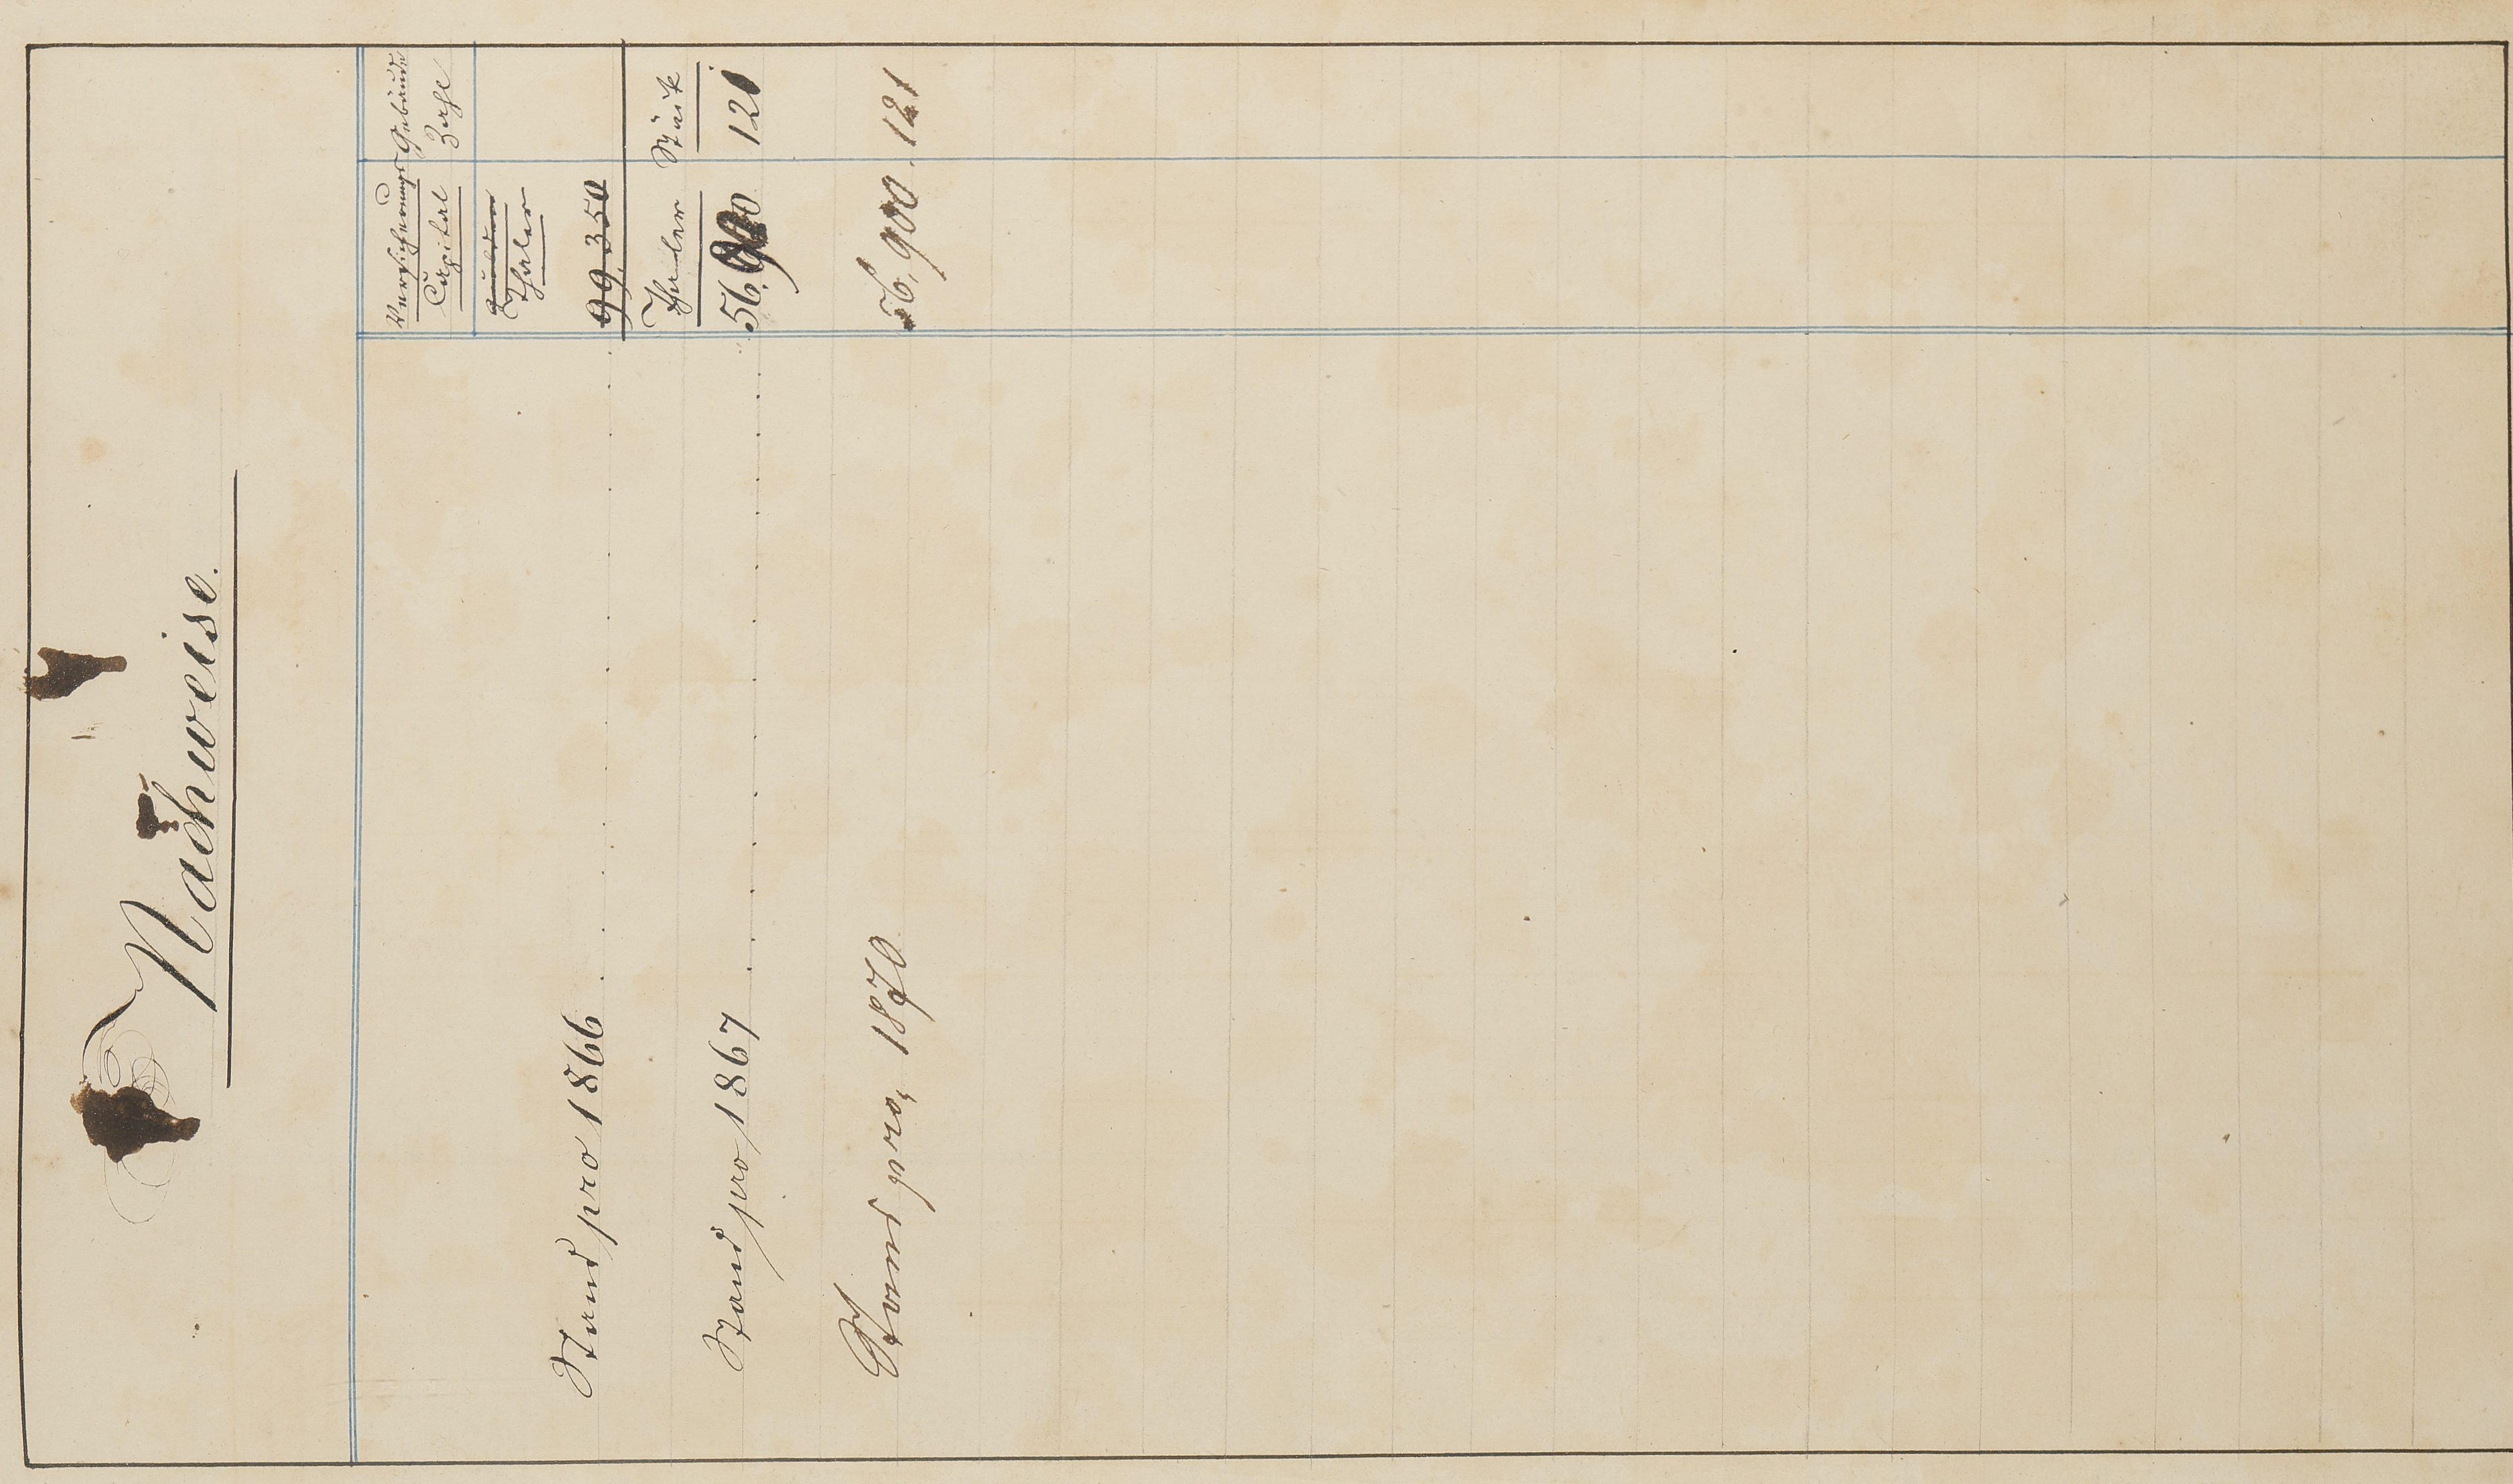 Nachweise.
Versicherungs Gebäude
Capital Zahl
Gulden
Thaler
Stand pro 1866 . . . . . . . . . . . . 99,350
Thaler Stück
Stand pro 1867 . . . . . . . . . . . . 56,900 121
Stand pro, 1870 56,900. 121